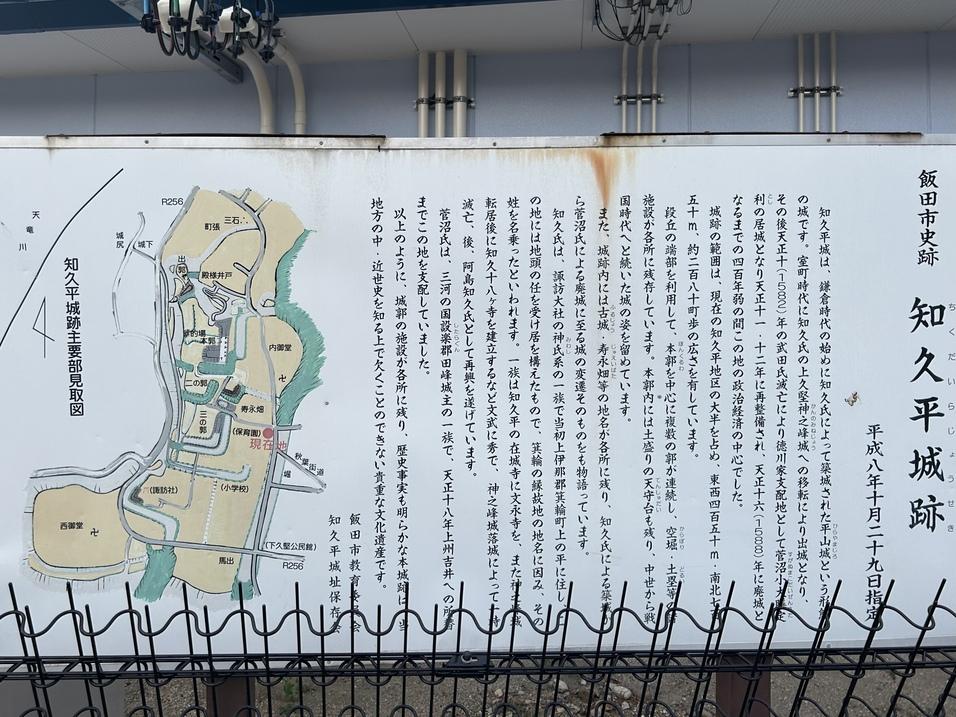 飯田市史跡　知久平城跡
ちくだいらじょうせき
平成八年十月二十九日指定
知久平城は、鎌倉時代の始めに知久氏によって築城された平山城という形
の城です。室町時代に知久氏の上久堅神之峰城への移転により出城となり、
その後天正十(1582)年の武田氏滅亡により徳川家支配地として菅沼小大膳定
利の居城となり天正十一・十二年に再整備され、天正十六(1588)年に廃城と
なるまでの四百年弱の間この地の政治経済の中心でした。
城跡の範囲は、現在の知久平地区の大半を占め、東西四百五十m・南北七百
五十m、約二百八十町歩の広さを有しています。
段丘の端部を利用して、本郭を中心に複数の郭が連続し、空堀・土塁等の
施設が各所に残存しています。本郭内には土盛りの天守台も残り、中世から戦
国時代へと続いた城の姿を留めています。
また、城跡内には古城・寿永畑等の地名が各所に残り、知久氏による築城か
ら菅沼氏による廃城に至る城の変遷そのものをも物語っています。
知久氏は、諏訪大社の神氏系の一族で当初上伊那郡箕輪町上の平に住し、
の地には地頭の任を受け居を構えたもので、箕輪の縁故地の地名に因み、その
姓を名乗ったといわれます。一族は知久平の在城寺に文永寺を、また神之峰城
転居後に知久十八ヶ寺を建立するなど文武に秀で、神之峰城落城によって一時
滅亡、後、阿島知久氏として再興を遂げています。
菅沼氏は、三河の国設楽郡田峰城主の一族で、天正十八年上州吉井への所替
までこの地を支配していました。
以上のように、城郭の施設が各所に残り、歴史事実も明らかな本城跡は、当
地方の中・近世史を知る上で欠くことのできない貴重な文化遺産です。
飯田市教育委員会
知久平城址保存会
知久平城跡主要部見取図
天竜川
R256
城尻
城下
町張
三石
出郭
殿様井戸
的場
本郭
内御堂
卍
二の郭
寿永畑
三の郭
(保育園)
現在地
秋葉街道
堀
(諏訪社)
(小学校)
西御堂
卍
(下久堅公民館)
R256
馬出